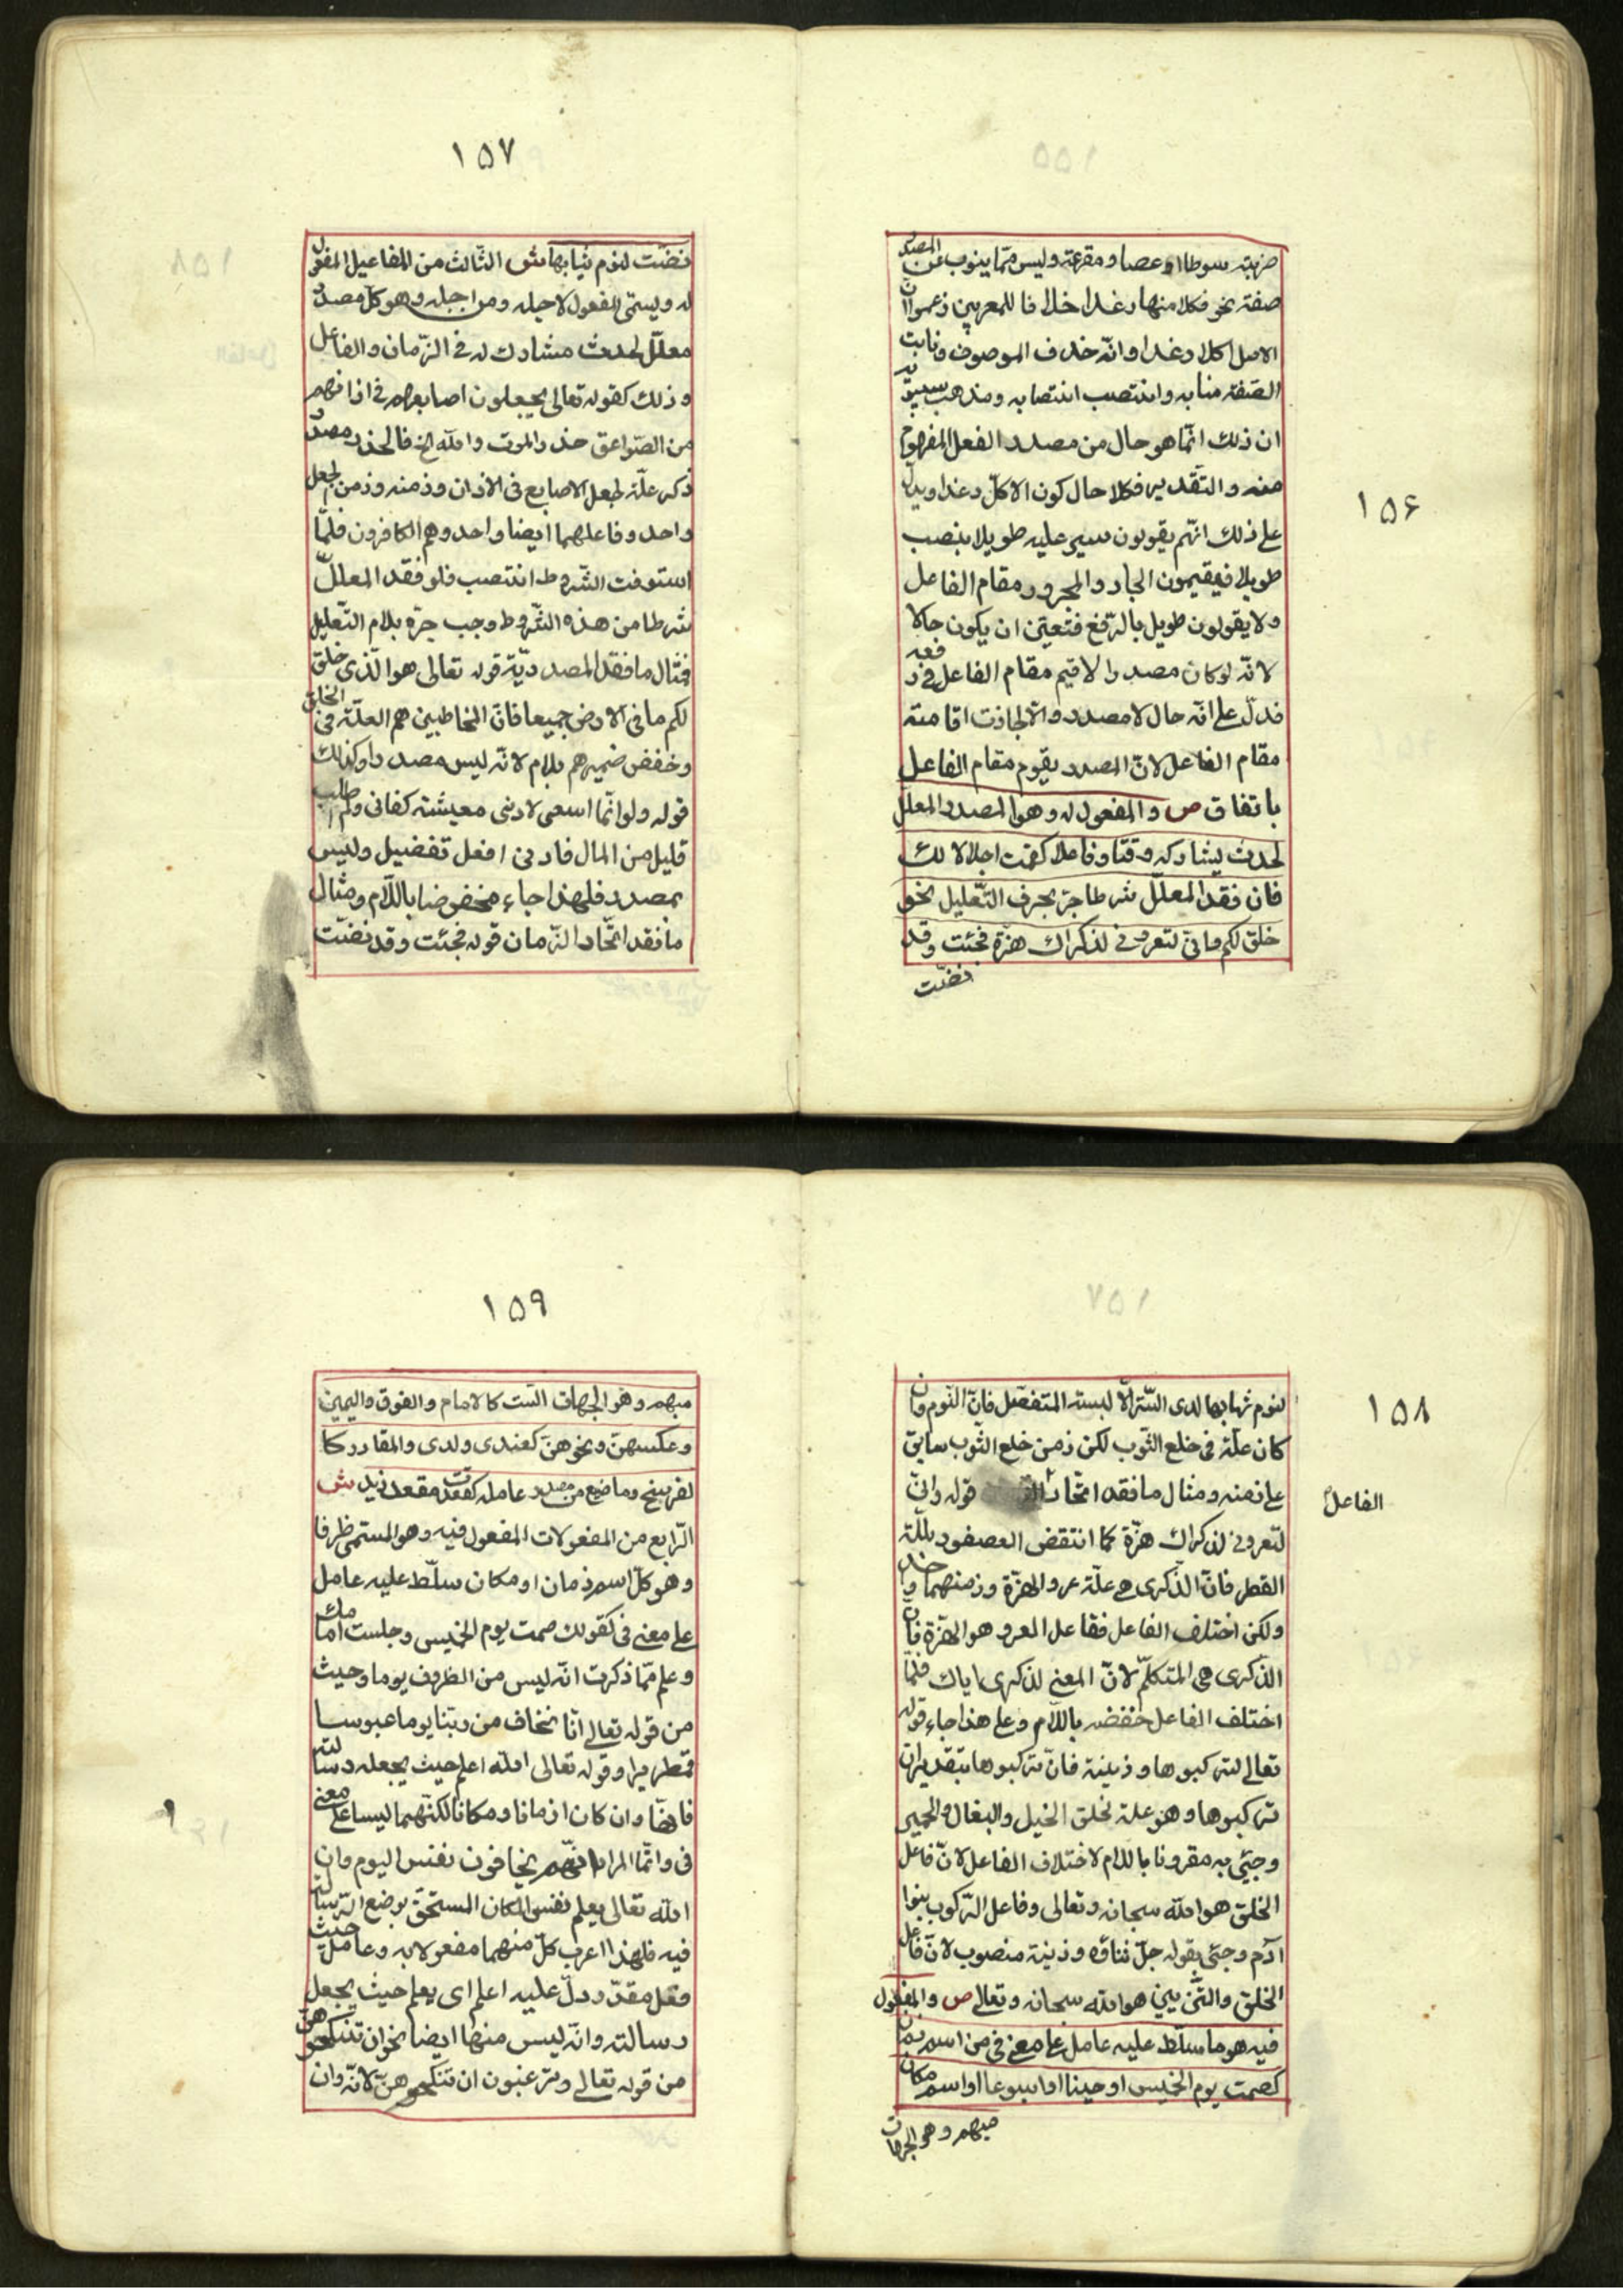 ١٥٦
ضربته سوطا او عصا و مقرعة وليس مما ينوب عن المصدر
صفته نحو فكلا منها رغدا خلافا للمعربين زعموا ان
الاصل اكلا رغدا وانه حذف الموصوف ونابت
الصفة منابه وانتصب انتصابه ومذهب سيبويه
ان ذلك انما هو حال من مصدر الفعل المفهوم
منه والتقدير فكلا حال كون الاكل رغدا ويدل
على ذلك انهم يقولون سير عليه طويلا بنصب
طويلا فيقيمون الجار والمجرور مقام الفاعل
ولا يقولون طويل بالرفع فتعين ان يكون حالا
لانه لو كان مصدرا لاقيم مقام الفاعل فرفعه
فدل على انه حال لا مصدر والا لجازت اقامته
مقام الفاعل لان المصدر يقوم مقام الفاعل
باتفاق ص والمفعول له وهو المصدر المعلل
لحدث يشاركه وقتا وفاعلا كقمت اجلالا لك
فان فقد المعلل شرطا جر بحرف التعليل نحو
خلق لكم واني لتعروني لذكراك هزة فجئت وقد
نضت
١٥٧
نضت لنوم ثيابها ش الثالث من المفاعيل المفعول
له ويسمى المفعول لاجله ومن اجله وهو كل مصدر
معلل لحدث مشارك له في الزمان والفاعل
وذلك كقوله تعالى يجعلون اصابعهم في اذانهم
من الصواعق حذر الموت والله الخ فالحذر مصدر
ذكر علة لجعل الاصابع في الاذان وزمنه وزمن الجعل
واحد وفاعلهما ايضا واحد وهم الكافرون فلما
استوفت الشروط انتصب فلو فقد المعلل
شرطا من هذه الشروط وجب جره بلام التعليل
فمثال ما فقد المصدرية قوله تعالى هو الذي خلق
لكم ما في الارض جميعا فان المخاطبين هم العلة في الخلق
وخفض ضميرهم بلام لانه ليس مصدرا وكذلك
قوله ولو انما اسعى لادنى معيشة كفاني ولم اطلب
قليل من المال فادنى افعل تفضيل وليس
بمصدر فلهذا جاء مخفوضا باللام ومثال
ما فقد اتحاد الزمان قوله فجئت وقد نضت
١٥٨
لنوم ثيابها لدى الستر الا لبسة المتفضل فان النوم وان
كان علة في خلع الثوب لكن زمن خلع الثوب سابق
على زمنه ومثال ما فقد اتحاد قوله واني
الفاعل
لتعروني لذكراك هزة كما انتقض العصفور بلله
القطر فان الذكرى هي علة عرو الهزة وزمنهما واحد
ولكن اختلف الفاعل ففاعل العرو هو الهزة فان
الذكرى هي المتكلم لان المعنى لذكرى اياك فلما
اختلف الفاعل خفضه باللام وعلى هذا جاء قوله
تعالى لتركبوها وزينة فان تركبوها بتقدير ان
تركبوها وهو علة لخلق الخيل والبغال والحمير
وجئ به مقرونا باللام لاختلاف الفاعل لان فاعل
الخلق هو الله سبحانه وتعالى وفاعل الركوب بنوا
آدم وجئ بقوله جل ثناؤه وزينة منصوب لان فاعل
الخلق والتزيين هو الله سبحانه وتعالى ص والمفعول
فيه هو ما سلط عليه عامل على معنى في من اسم زمان
كصمت يوم الخميس او حينا او اسبوعا او اسم مكان
مبهم وهو الجهات
١٥٩
مبهم وهو الجهات الست كالامام والفوق واليمين
وعكسهن ونحوهن كعند ولدى والمقادر كا
لفرسخ وما صيغ من مصدر عامله كقعدت مقعد زيد ش
الرابع من المفعولات المفعول فيه وهو المسمى ظرفا
وهو كل اسم زمان او مكان سلط عليه عامل
على معنى في كقولك صمت يوم الخميس وجلست امامك
وعلم مما ذكرت انه ليس من الظروف يوما وحيث
من قوله تعالى انا نخاف من ربنا يوما عبوسا
قمطريرا وقوله تعالى الله اعلم حيث يجعل رسالته
فانهما وان كان ازمانا ومكانا لكنهما ليسا على معنى
في وانما المراد انهم يخافون نفس اليوم وان
الله تعالى يعلم نفس المكان المستحق بوضع الرسالة
فيه فلهذا اعرب كل منهما مفعولا به وعامل حيث
فعل مقدر دل عليه اعلم اى يعلم حيث يجعل
رسالته وانه ليس منها ايضا نحو ان تنكحوهن
من قوله تعالى وترغبون ان تنكحوهن لانه وان